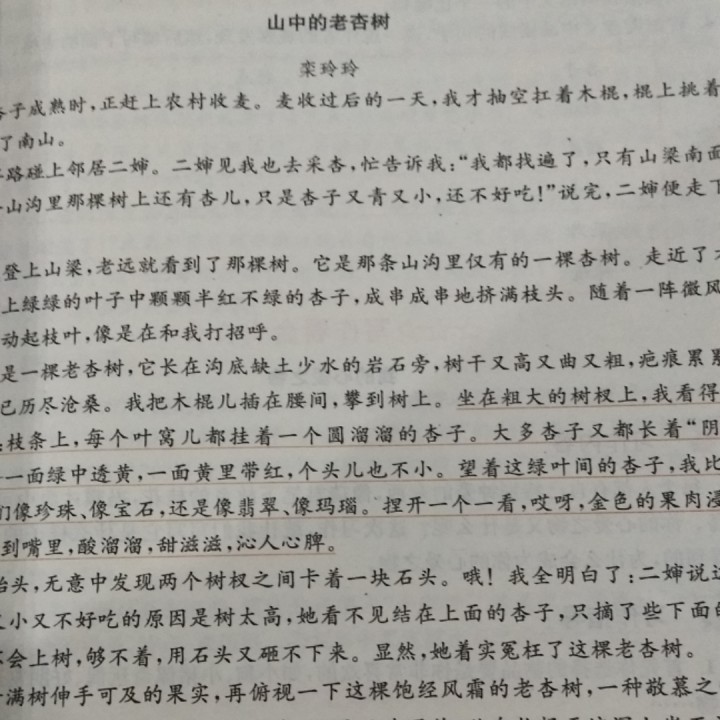 山中的老杏树
栾玲玲
杏子成熟时,正赶上农村收麦。麦收过后的一天,我才抽空扛着木棍,棍上挑着
了南山。
路碰上邻居二婶。二婶见我也去采杏,忙告诉我:“我都找遍了,只有山梁南面
山沟里那棵树上还有杏儿,只是杏子又青又小,还不好吃!”说完,二婶便走下
登上山梁,老远就看到了那棵树。它是那条山沟里仅有的一棵杏树。走近了才
上绿绿的叶子中颗颗半红不绿的杏子,成串成串地挤满枝头。随着一阵微风
动起枝叶,像是在和我打招呼。
是一棵老杏树,它长在沟底缺土少水的岩石旁,树干又高又曲又粗,疤痕累累
已历尽沧桑。我把木棍儿插在腰间,攀到树上。坐在粗大的树杈上,我看得
枝条上,每个叶窝儿都挂着一个圆溜溜的杏子。大多杏子又都长着“阴
一面绿中透黄,一面黄里带红,个头儿也不小。望着这绿叶间的杏子,我比
们像珍珠、像宝石,还是像翡翠、像玛瑙。捏开一个一看,哎呀,金色的果肉浸
到嘴里,酸溜溜,甜滋滋,沁人心脾。
抬头,无意中发现两个树杈之间卡着一块石头。哦!我全明白了:二婶说这
又小又不好吃的原因是树太高,她看不见结在上面的杏子,只摘了些下面的
不会上树,够不着,用石头又砸不下来。显然,她着实冤枉了这棵老杏树。
满树伸手可及的果实,再俯视一下这棵饱经风霜的老杏树,一种敬慕之